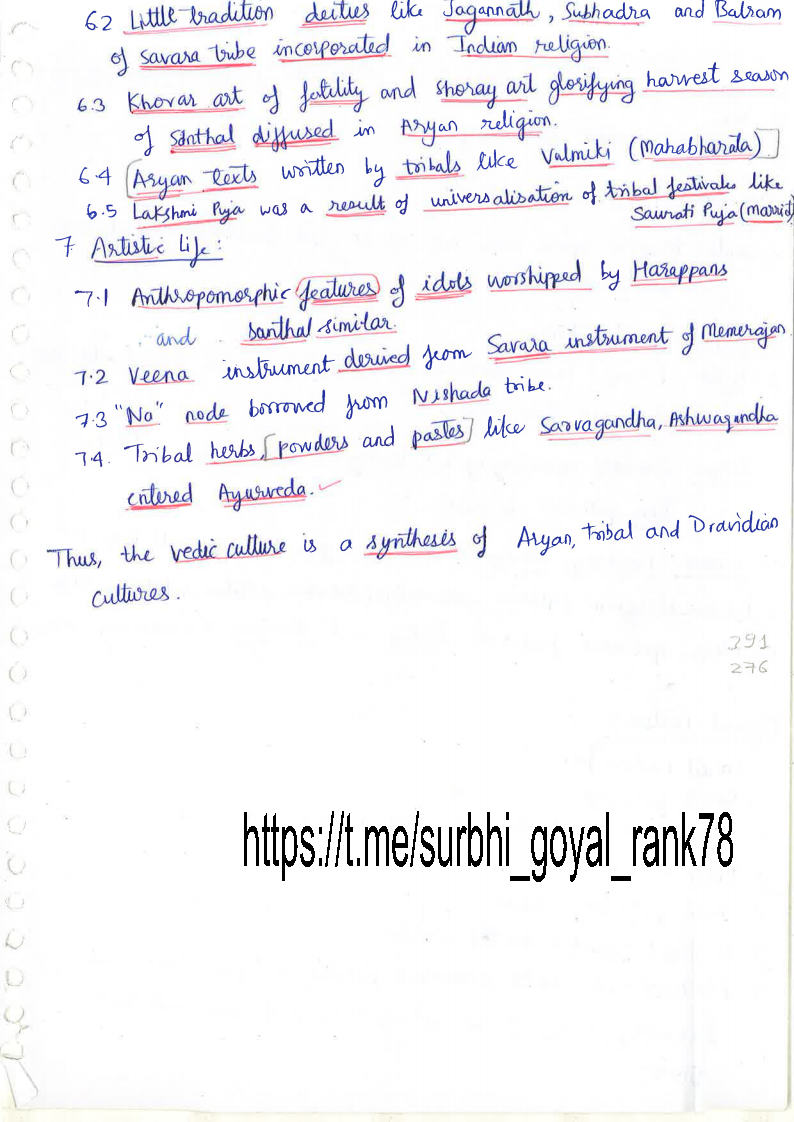 6.2 Little tradition deities like Jagannath, Subhadra and Balram
of savara tribe incorporated in Indian religion.
6.3 Khovar art of fertility and shoray art glorifying harvest season
of Santhal diffused in Aryan religion.
6.4 [Aryan texts written by tribals like Valmiki (Mahabharata)]
6.5 Lakshmi Puja was a result of universalisation of tribal festivals like
Saurati Puja (Marriot)
7 Artistic life:
7.1 Anthropomorphic features of idols worshipped by Harappans
and santhal similar.
7.2 Veena instrument derived from Savara instrument of Memerajan.
7.3 "Na" node borrowed from Nishada tribe.
7.4. Tribal herbs, [powders and pastes] like Sarvagandha, Ashwagandha
entered Ayurveda.
Thus, the vedic culture is a synthesis of Aryan, Tribal and Dravidian
cultures.
391
276
https://t.me/surbhi_goyal_rank78